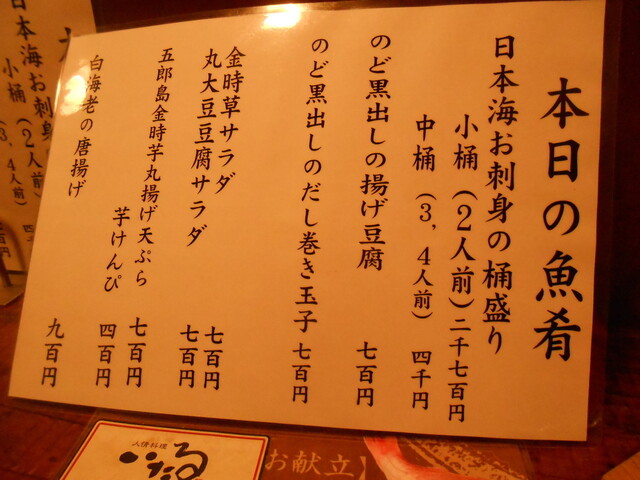 本日の魚肴
日本海お刺身の桶盛り
小桶（２人前）二千七百円
中桶（３，４人前）四千円
のど黒出しの揚げ豆腐 七百円
のど黒出しのだし巻き玉子 七百円
金時草サラダ 七百円
丸大豆豆腐サラダ 七百円
五郎島金時芋丸揚げ天ぷら 七百円
芋けんぴ 四百円
白海老の唐揚げ 九百円
日本海お刺身
小桶（２人前）
（３，４人前）
人情料理
いたる
お献立